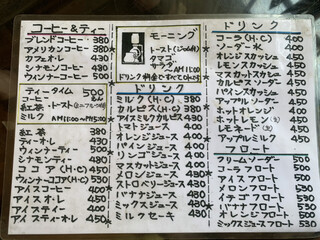 コーヒー&ティー
ブレンドコーヒー 380
アメリカンコーヒー 380
カフェ・オ・レ 430
シナモンコーヒー 480
ウィンナーコーヒー 500
ティータイム 500
コーヒー
紅茶
ミルク AM11:00〜PM5:00
紅茶 380
ティーオ・レ 430
ウィンナーティー 500
シナモンティー 480
ココア(H・C) 450
ウィンナーココア(H・C) 530
アイスコーヒー 400
アイスオ・レ 450
アイスティー 400
アイスティーオ・レ 450
モーニング
トースト
タマゴ
サラダ AM11:00
ドリンク料金で
ドリンク
ミルク(H・C) 380
カルピス(H・C) 380
アイスミルクカルピス 430
トマトジュース 400
オレンジジュース 400
パインジュース 400
リンゴジュース 400
マスカットジュース 400
メロンジュース 430
ストロベリージュース 430
バナナジュース 430
ミルクセーキ 430
ドリンク
コーラ(H・C) 400
ソーダ水 400
オレンジスカッシュ 450
レモンスカッシュ 450
マスカットスカッシュ 450
カルピスソーダー 450
パインスカッシュ 450
アップルソーダー 450
ホットオレンジ 400
ホットレモン 400
レモネード 400
アップルミルク 450
フロート
クリームソーダー 500
コーラフロート 500
アイスフロート 500
メロンフロート 530
イチゴフロート 530
バナナフロート 530
オレンジフロート 500
ミックスジュースフロート 530